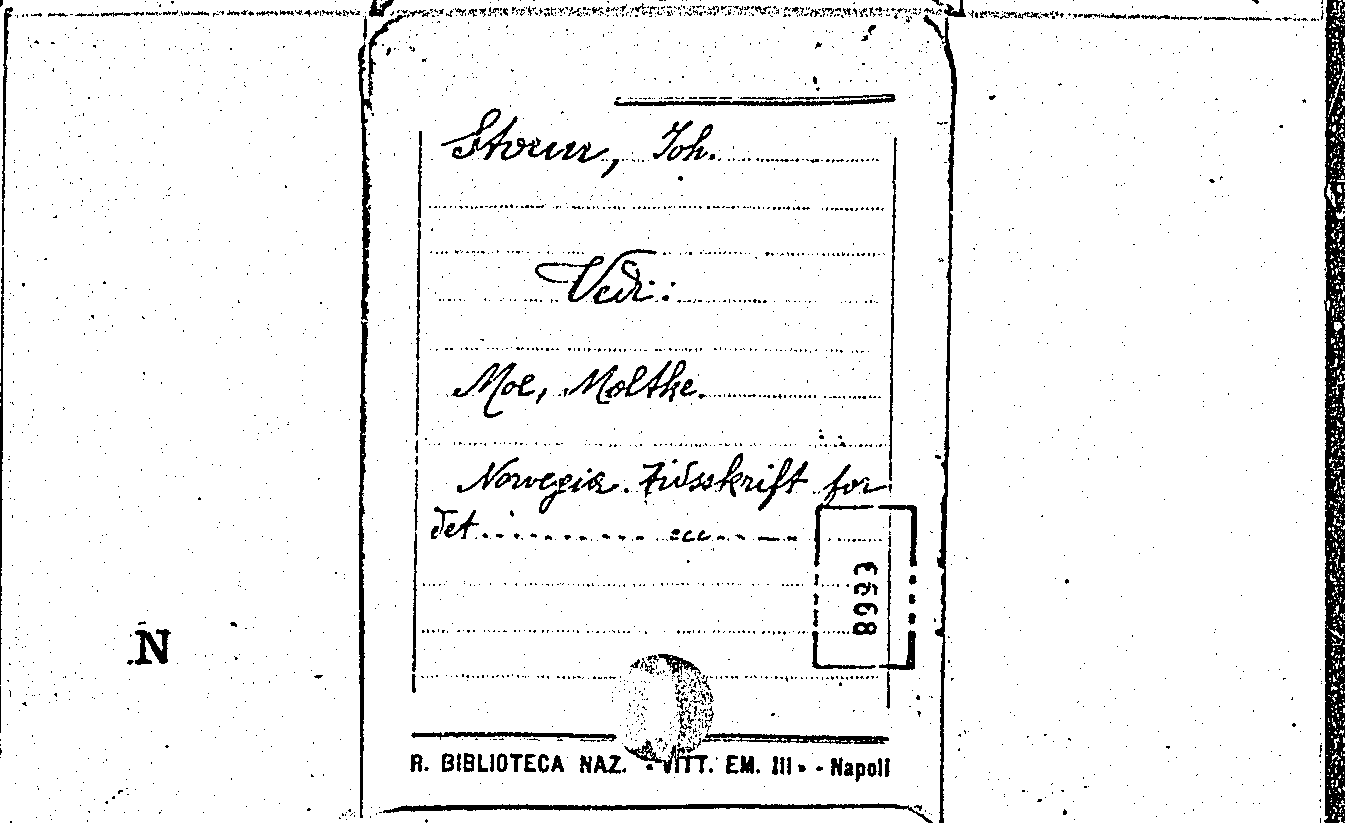 Storm, Joh.
Vedi:
Moe, Moltke.
Norvegia. Tidsskrift for
det .......... ecc.......
8993
N
R. BIBLIOTECA NAZ. « VITT. EM. III » - Napoli